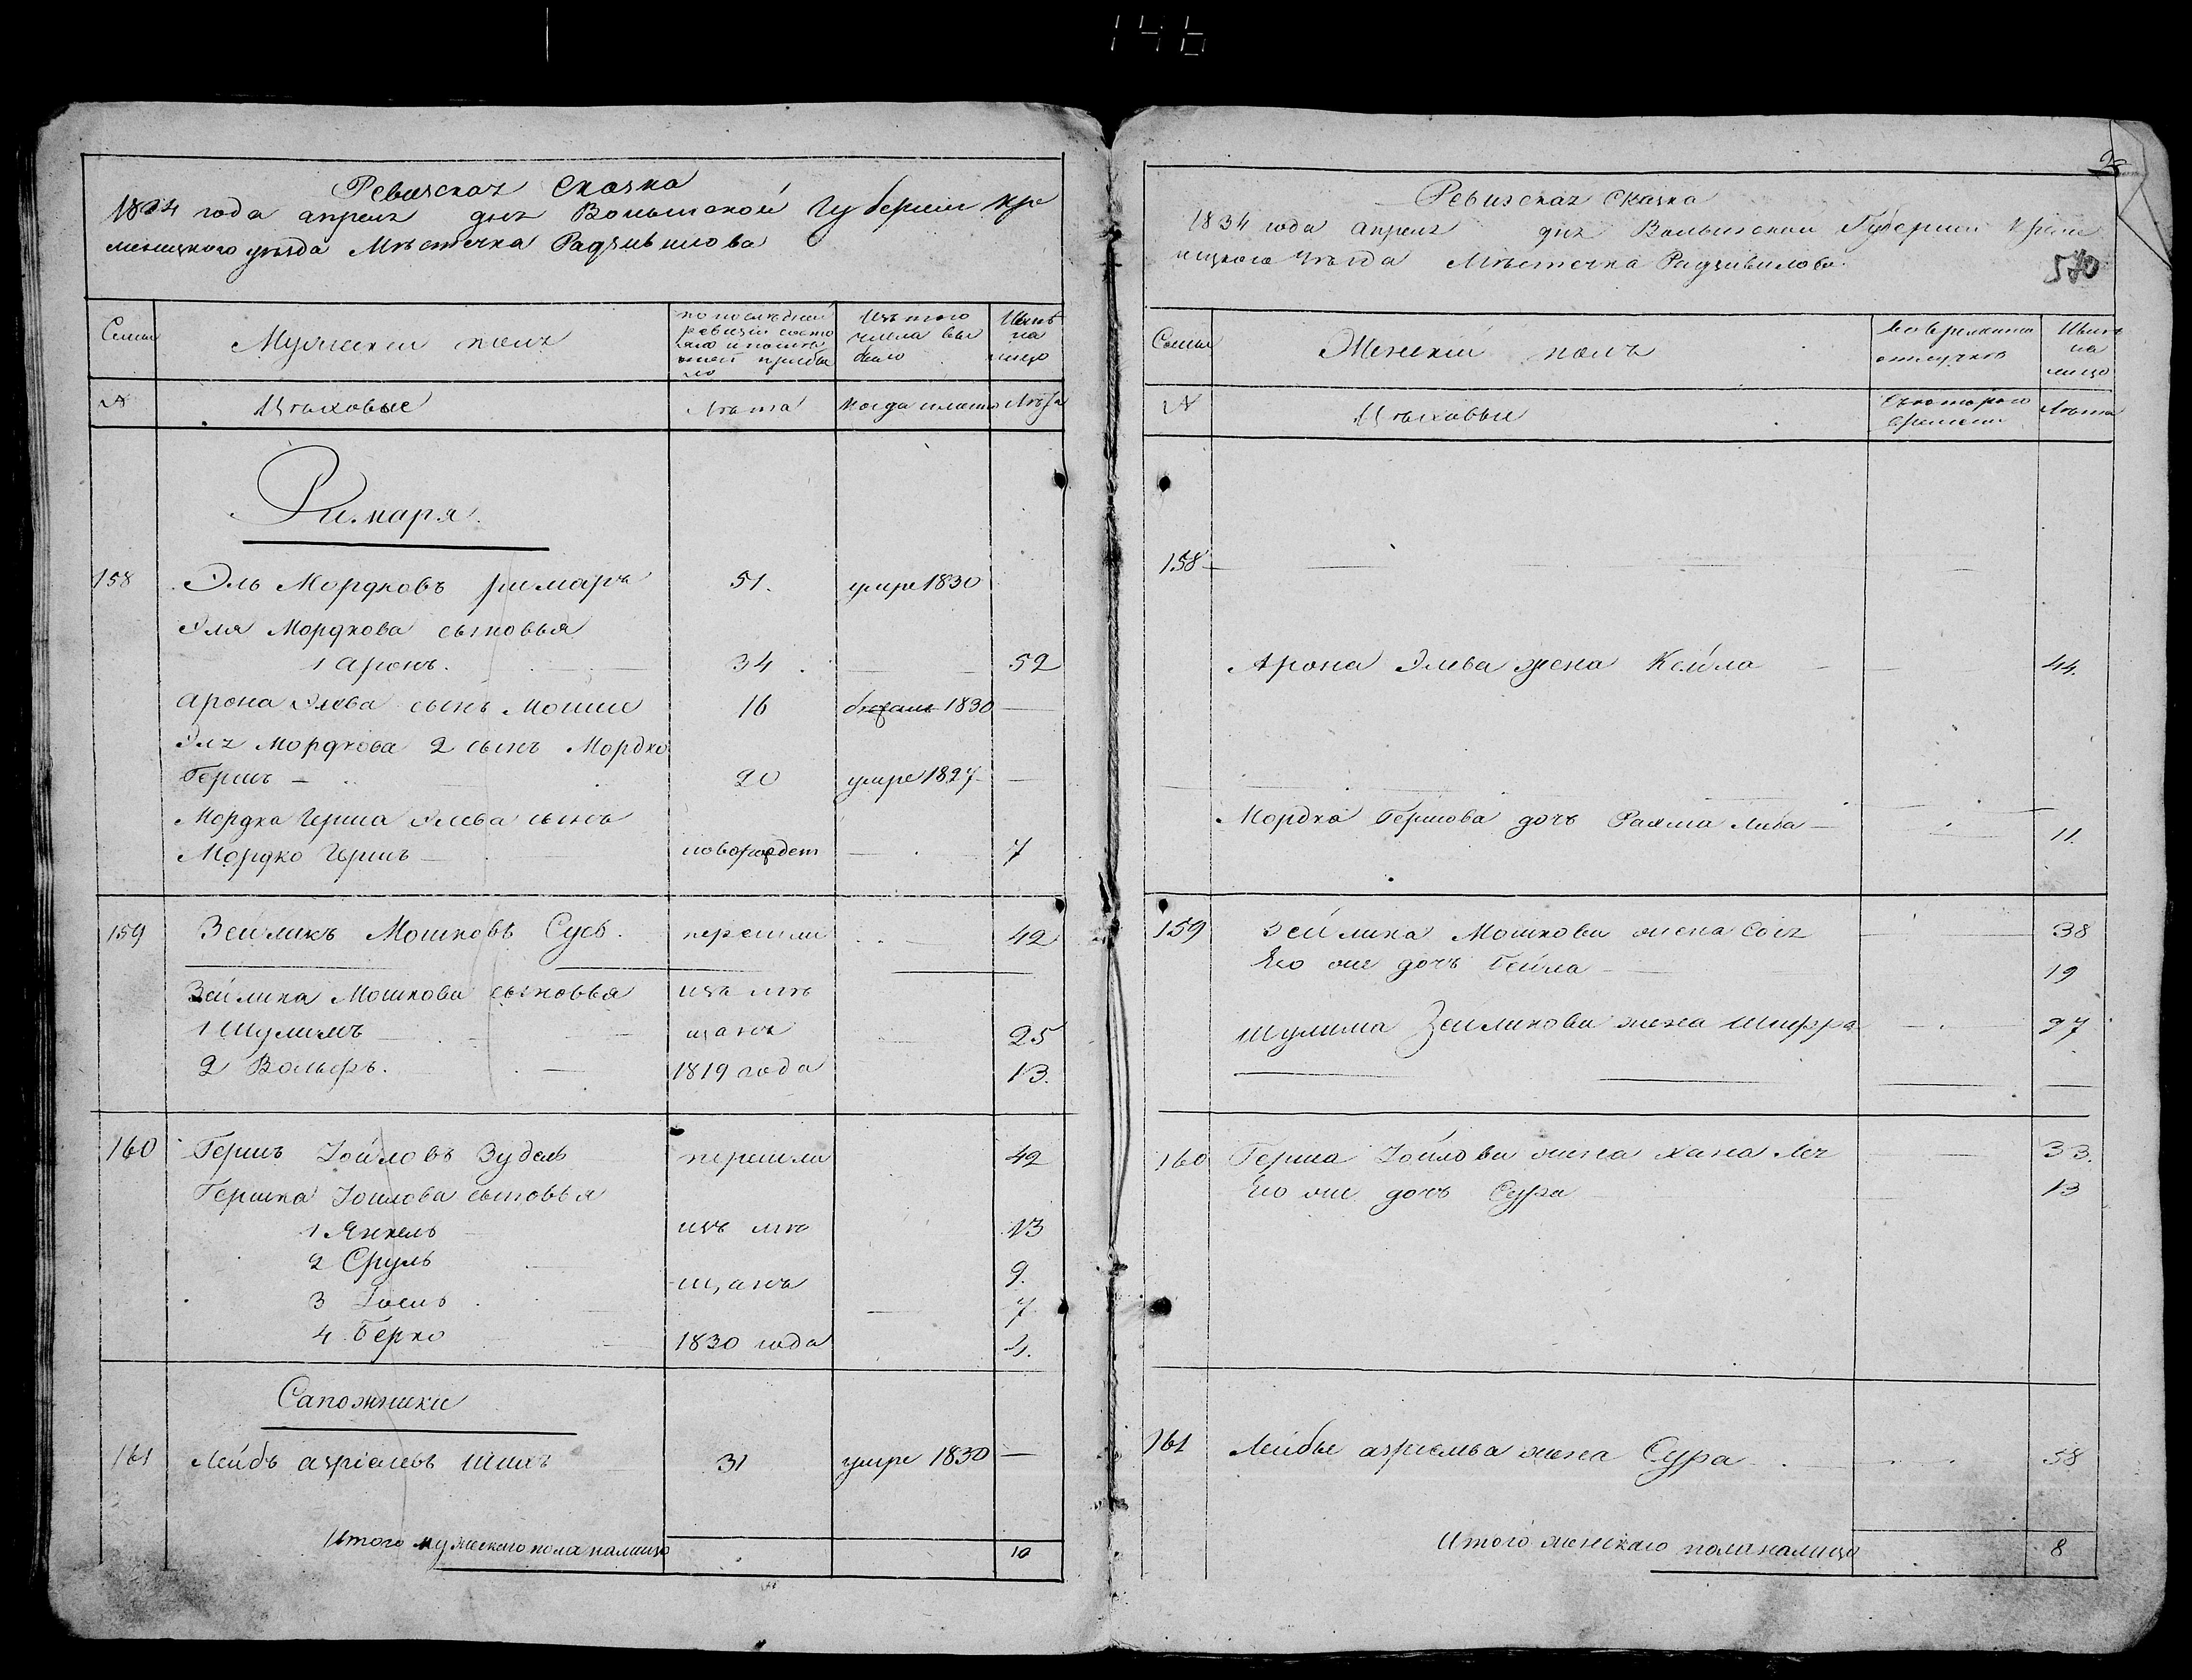 146
Ревизская Сказка
1834 года апреля дня Волынской Губернии Кре
менецкого уезда Мѣстечка Радзивилова
Семьи
Мужеский полъ
по послѣдней
ревизіи состо
яло и послѣ
оной прибы
ло
Изъ того
числа вы
было
Нынѣ
на
лицо
№
Цѣховые
Лѣта
Когда именно
Лѣта
Римаря
158 Эль Мордковъ римаръ 51. умре 1830
Эля Мордкова сыновья
1 Аронъ. 34 52
Арона Элева сынъ Мошко 16 1830
Эля Мордкова 2 сынъ Мордко
Гершъ 20 умре 1827
Мордка Герша Элева сынъ
Мордко Гершъ новорожден 7
159 Зейликъ Мошковъ Сусъ. перешли 42
Зейлика Мошкова сыновья изъ мѣ
1 Шулимъ щанъ 25
2 Вольфъ. 1819 года 13.
160 Гершъ Іойловъ Зудель перешли 42
Гершка Іоилова сыновья
1 Янкель изъ мѣ 13
2 Сруль 9.
щанъ
3 Іосиъ 7
4 Берко 1830 года 4.
Сапожники
161 Лейбъ азріелевъ Шихъ 31 умре 1830
Итого мужескаго пола налицо 10
Ревизская Сказка
1834 года апреля дня Волынской Губернии Креме
нецкого уезда Мѣстечка Радзивилова.
570
Семьи
Женскій полъ
во временной
отлучкѣ
Нынѣ
на
лицо
№
Цѣховые
Съ котораго
времени
Лѣта
158
Арона Элева жена Кейла 44.
Мордка Гершова дочь Рахма Либа 11.
159 Зейлика Мошкова жена Сося 38
Его же дочь Бейла 19
Шулима Зейликова жена Шифра 27
160 Герша Іойлова жена Хана Лея 33.
Его же дочь Сура 13
161 Лейбы азріельва жена Сура 58
Итого женскаго пола налицо 8